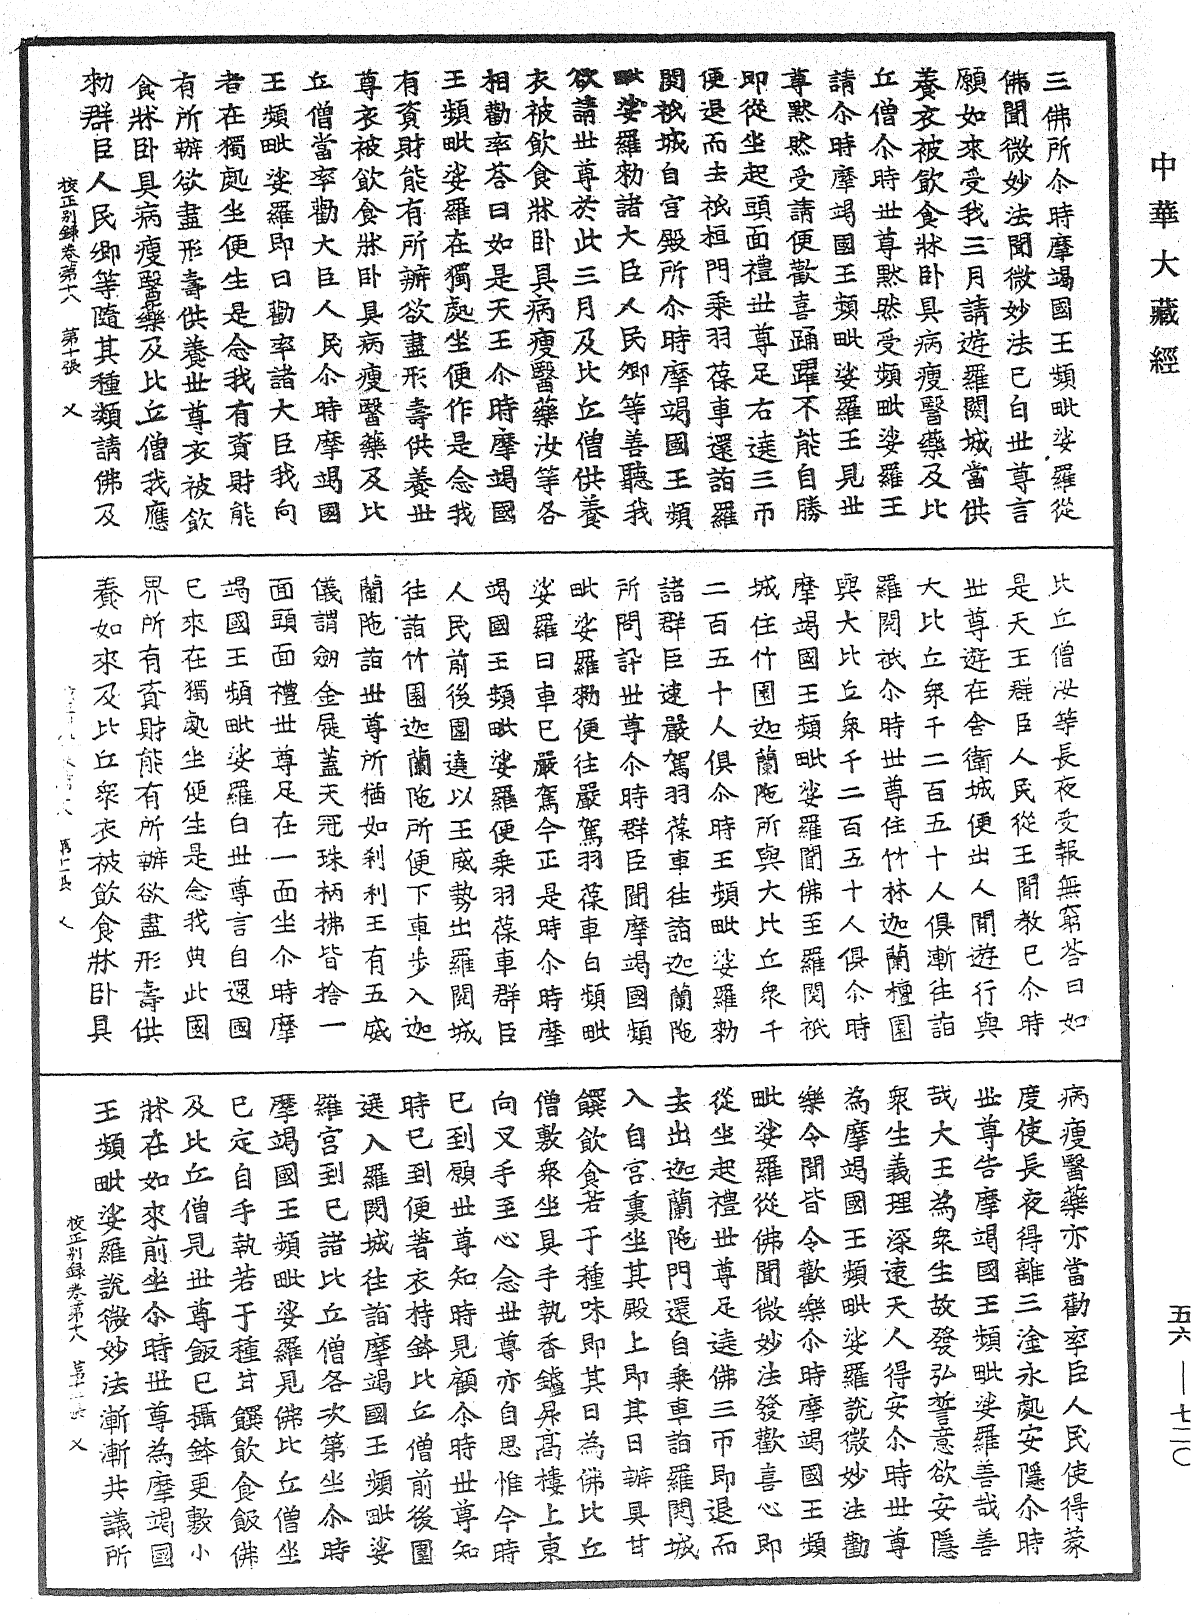 中華大藏經
三佛所尒時摩竭國王頻毗娑羅從
佛聞微妙法聞微妙法已白世尊言
願如來受我三月請遊羅閱城當供
養衣被飲食牀卧具病瘦醫藥及比
丘僧尒時世尊黙然受頻毗娑羅王
請尒時摩竭國王頻毗娑羅王見世
尊黙然受請便歡喜踊躍不能自勝
即從坐起頭面禮世尊足右遶三帀
便退而去祇桓門乘羽葆車還詣羅
閱祇城自宫殿所尒時摩竭國王頻
毗娑羅勑諸大臣人民卿等善聽我
欲請世尊於此三月及比丘僧供養
衣被飲食牀卧具病瘦醫藥汝等各
相勸率荅曰如是天王尒時摩竭國
王頻毗娑羅在獨處坐便作是念我
有資財能有所辦欲盡形壽供養世
尊衣被飲食牀卧具病瘦醫藥及比
丘僧當率勸大臣人民尒時摩竭國
王頻毗娑羅即日勸率諸大臣我向
者在獨處坐便生是念我有資財能
有所辦欲盡形壽供養世尊衣被飲
食牀卧具病瘦醫藥及比丘僧我應
勑群臣人民卿等隨其種類請佛及
校正别録卷第十八　第十張　义
比丘僧汝等長夜受報無窮荅曰如
是天王群臣人民從王聞教已尒時
世尊遊在舍衛城便出人間遊行與
大比丘衆千二百五十人俱漸往詣
羅閱祇尒時世尊住竹林迦蘭檀園
與大比丘衆千二百五十人俱尒時
摩竭國王頻毗娑羅聞佛至羅閱祇
城住竹園迦蘭陁所與大比丘衆千
二百五十人俱尒時王頻毗娑羅勑
諸群臣速嚴駕羽葆車往詣迦蘭陁
所問訊世尊尒時群臣聞摩竭國頻
毗娑羅勑便往嚴駕羽葆車白頻毗
娑羅曰車已嚴駕今正是時尒時摩
竭國王頻毗娑羅便乘羽葆車群臣
人民前後圍遶以王威勢出羅閱城
往詣竹園迦蘭陁所便下車步入迦
蘭陁詣世尊所猶如刹利王有五威
儀謂劒金屣蓋天冠珠柄拂皆捨一
面頭面禮世尊足在一面坐尒時摩
竭國王頻毗娑羅白世尊言自還國
已來在獨處坐便生是念我典此國
界所有資財能有所辦欲盡形壽供
養如來及比丘衆衣被飲食牀卧具
病瘦醫藥亦當勸率臣人民使得蒙
度使長夜得離三塗永處安隱尒時
世尊告摩竭國王頻毗娑羅善哉善
哉大王為衆生故發弘誓意欲安隱
衆生義理深遠天人得安尒時世尊
為摩竭國王頻毗娑羅說微妙法勸
樂令聞皆令歡樂尒時摩竭國王頻
毗娑羅從佛聞微妙法發歡喜心即
從坐起禮世尊足遶佛三帀即退而
去出迦蘭陁門還自乘車詣羅閱城
入自宫裏坐其殿上即其日辦具甘
饌飲食若干種味即其日為佛比丘
僧敷衆坐具手執香鑪昇高樓上東
向叉手至心念世尊亦自思惟今時
已到願世尊知時見顧尒時世尊知
時已到便著衣持鉢比丘僧前後圍
遶入羅閱城往詣摩竭國王頻毗娑
羅宫到已諸比丘僧各次第坐尒時
摩竭國王頻毗娑羅見佛比丘僧坐
已定自手執若干種甘饌飲食飯佛
及比丘僧見世尊飯已攝鉢更敷小
牀在如來前坐尒時世尊為摩竭國
王頻毗娑羅說微妙法漸漸共議所
校正别録卷第十八　义
五六—七二〇